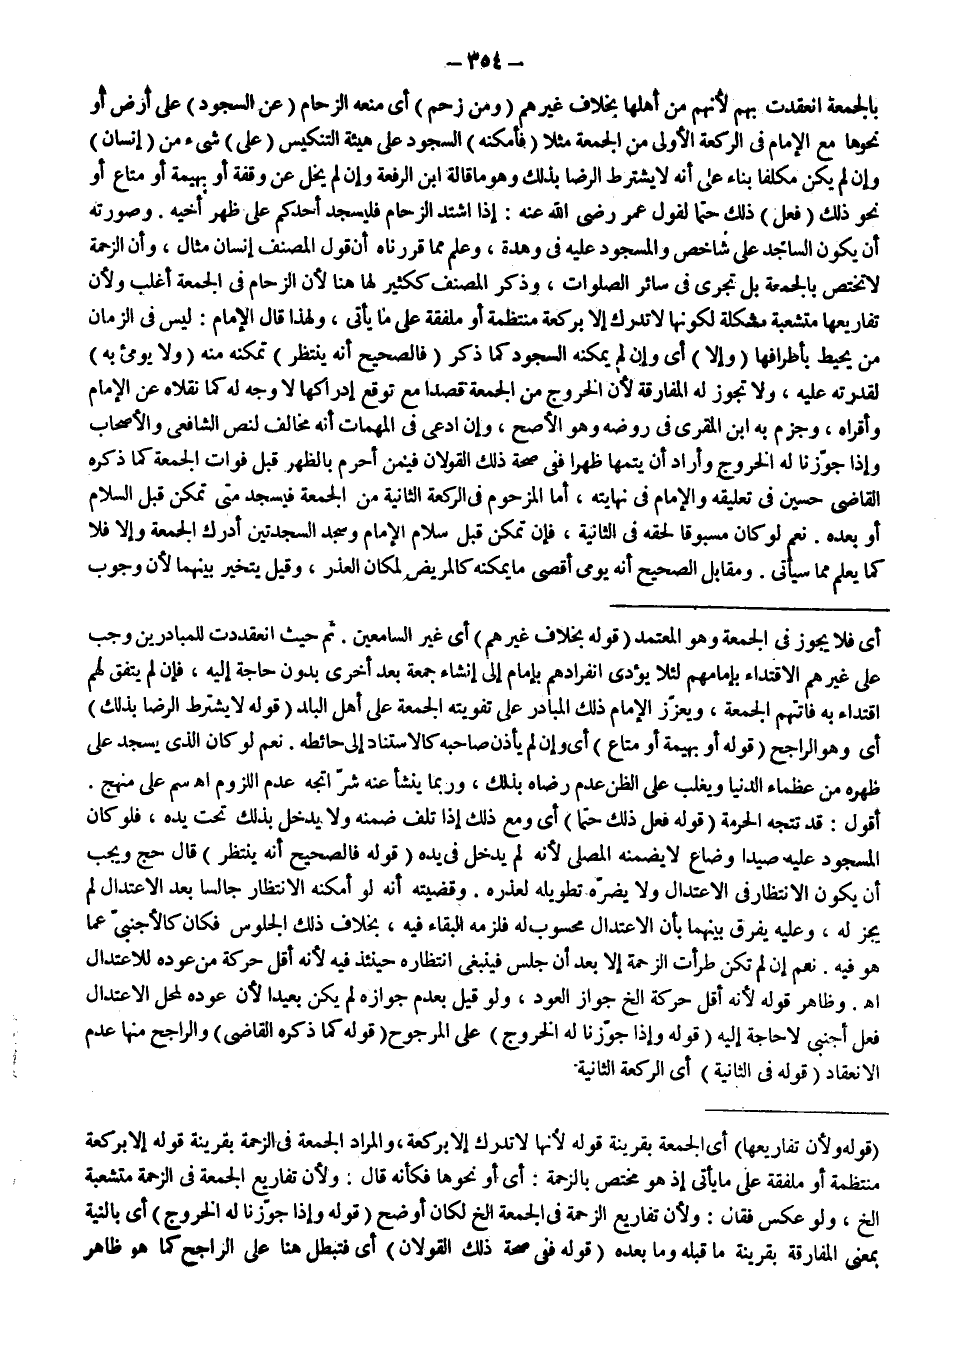 — ٣٥٤ —
بالجمعة انعقدت بهم لأنهم من أهلها بخلاف غيرهم (ومن زحم) أى منعه الزحام (عن السجود) على أرض أو
نحوها مع الإمام فى الركعة الأولى من الجمعة مثلا (فأمكنه) السجود على هيئة التنكيس (على) شىء من (إنسان)
وإن لم يكن مكلفا بناء على أنه لايشترط الرضا بذلك وهو ماقاله ابن الرفعة وإن لم يخل عن وقفة أو بهيمة أو متاع أو
نحو ذلك (فعل) ذلك حتما لقول عمر رضى الله عنه : إذا اشتد الزحام فليسجد أحدكم على ظهر أخيه . وصورته
أن يكون الساجد على شاخص والمسجود عليه فى وهدة ، وعلم مما قررناه أن قول المصنف إنسان مثال ، وأن الزحمة
لاتختص بالجمعة بل تجرى فى سائر الصلوات ، وذكر المصنف ككثير لها هنا لأن الزحام فى الجمعة أغلب ولأن
تفاريعها متشعبة مشكلة لكونها لاتدرك إلا بركعة منتظمة أو ملفقة على ما يأتى ، ولهذا قال الإمام : ليس فى الزمان
من يحيط بأطرافها (وإلا) أى وإن لم يمكنه السجود كما ذكر (فالصحيح أنه ينتظر) تمكنه منه (ولا يومئ به)
لقدرته عليه ، ولا تجوز له المفارقة لأن الخروج من الجمعة قصدا مع توقع إدراكها لا وجه له كما نقلاه عن الإمام
وأقراه ، وجزم به ابن المقرى فى روضه وهو الأصح ، وإن ادعى فى المهمات أنه مخالف لنص الشافعى والأصحاب
وإذا جوّزنا له الخروج وأراد أن يتمها ظهرا فنى صحة ذلك القولان فيمن أحرم بالظهر قبل فوات الجمعة كما ذكره
القاضى حسين فى تعليقه والإمام فى نهايته ، أما المزحوم فى الركعة الثانية من الجمعة فيسجد متى تمكن قبل السلام
أو بعده . نعم لو كان مسبوقا لحقه فى الثانية ، فإن تمكن قبل سلام الإمام وسجد السجدتين أدرك الجمعة وإلا فلا
كما يعلم مما سيأتى . ومقابل الصحيح أنه يومى أقصى مايمكنه كالمريض لمكان العذر ، وقيل يتخير بينهما لأن وجوب
أى فلا يجوز فى الجمعة وهو المعتمد (قوله بخلاف غيرهم) أى غير السامعين . ثم حيث انعقدت للمبادرين وجب
على غيرهم الاقتداء بإمامهم لئلا يؤدى انفرادهم بإمام إلى إنشاء جمعة بعد أخرى بدون حاجة إليه ، فإن لم يتفق لهم
اقتداء به فاتتهم الجمعة ، ويعزّر الإمام ذلك المبادر على تفويته الجمعة على أهل البلد (قوله لايشترط الرضا بذلك)
أى وهو الراجح (قوله أو بهيمة أو متاع) أى وإن لم يأذن صاحبه كالاستناد إلى حائطه . نعم لو كان الذى يسجد على
ظهره من عظماء الدنيا ويغلب على الظن عدم رضاه بذلك ، وربما ينشأ عنه شرّ اتجه عدم اللزوم اهـ سم على منهج .
أقول : قد تتجه الحرمة (قوله فعل ذلك حتما) أى ومع ذلك إذا تلف ضمنه ولا يدخل بذلك تحت يده ، فلو كان
المسجود عليه صيدا وضاع لايضمنه المصلى لأنه لم يدخل فى يده (قوله فالصحيح أنه ينتظر) قال حج ويجب
أن يكون الانتظار فى الاعتدال ولا يضرّه تطويله لعذره . وقضيته أنه لو أمكنه الانتظار جالسا بعد الاعتدال لم
يجز له ، وعليه يفرق بينهما بأن الاعتدال محسوب له فلزمه البقاء فيه ، بخلاف ذلك الجلوس فكان كالأجنبىّ عما
هو فيه . نعم إن لم تكن طرأت الزحمة إلا بعد أن جلس فينبغى انتظاره حينئذ فيه لأنه أقل حركة من عوده للاعتدال
اهـ . وظاهر قوله لأنه أقل حركة الخ جواز العود ، ولو قيل بعدم جوازه لم يكن بعيدا لأن عوده لمحل الاعتدال
فعل أجنبى لاحاجة إليه (قوله وإذا جوّزنا له الخروج) على المرجوح (قوله كما ذكره القاضى) والراجح منها عدم
الانعقاد (قوله فى الثانية) أى الركعة الثانية
(قوله ولأن تفاريعها) أى الجمعة بقرينة قوله لأنها لاتدرك إلا بركعة ، والمراد الجمعة فى الزحمة بقرينة قوله إلا بركعة
منتظمة أو ملفقة على مايأتى إذ هو مختص بالزحمة : أى أو نحوها فكأنه قال : ولأن تفاريع الجمعة فى الزحمة متشعبة
الخ ، ولو عكس فقال : ولأن تفاريع الزحمة فى الجمعة الخ لكان أوضح (قوله وإذا جوّزنا له الخروج) أى بالنية
بمعنى المفارقة بقرينة ما قبله وما بعده (قوله فنى صحة ذلك القولان) أى فتبطل هنا على الراجح كما هو ظاهر